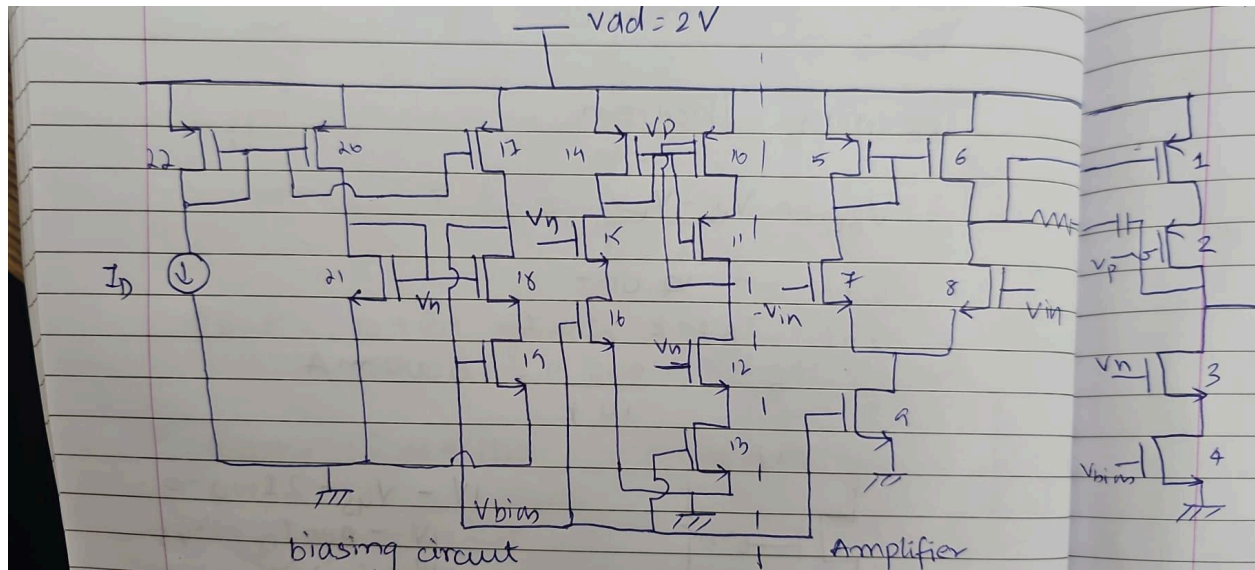 Vdd = 2V
22
20
17
14
VP
10
5
6
1
Vn
15
11
2
VP
ID
21
Vn
18
16
-Vin
7
8
Vin
19
Vn
12
Vn
3
13
9
Vbias
4
Vbias
biasing circuit
Amplifier